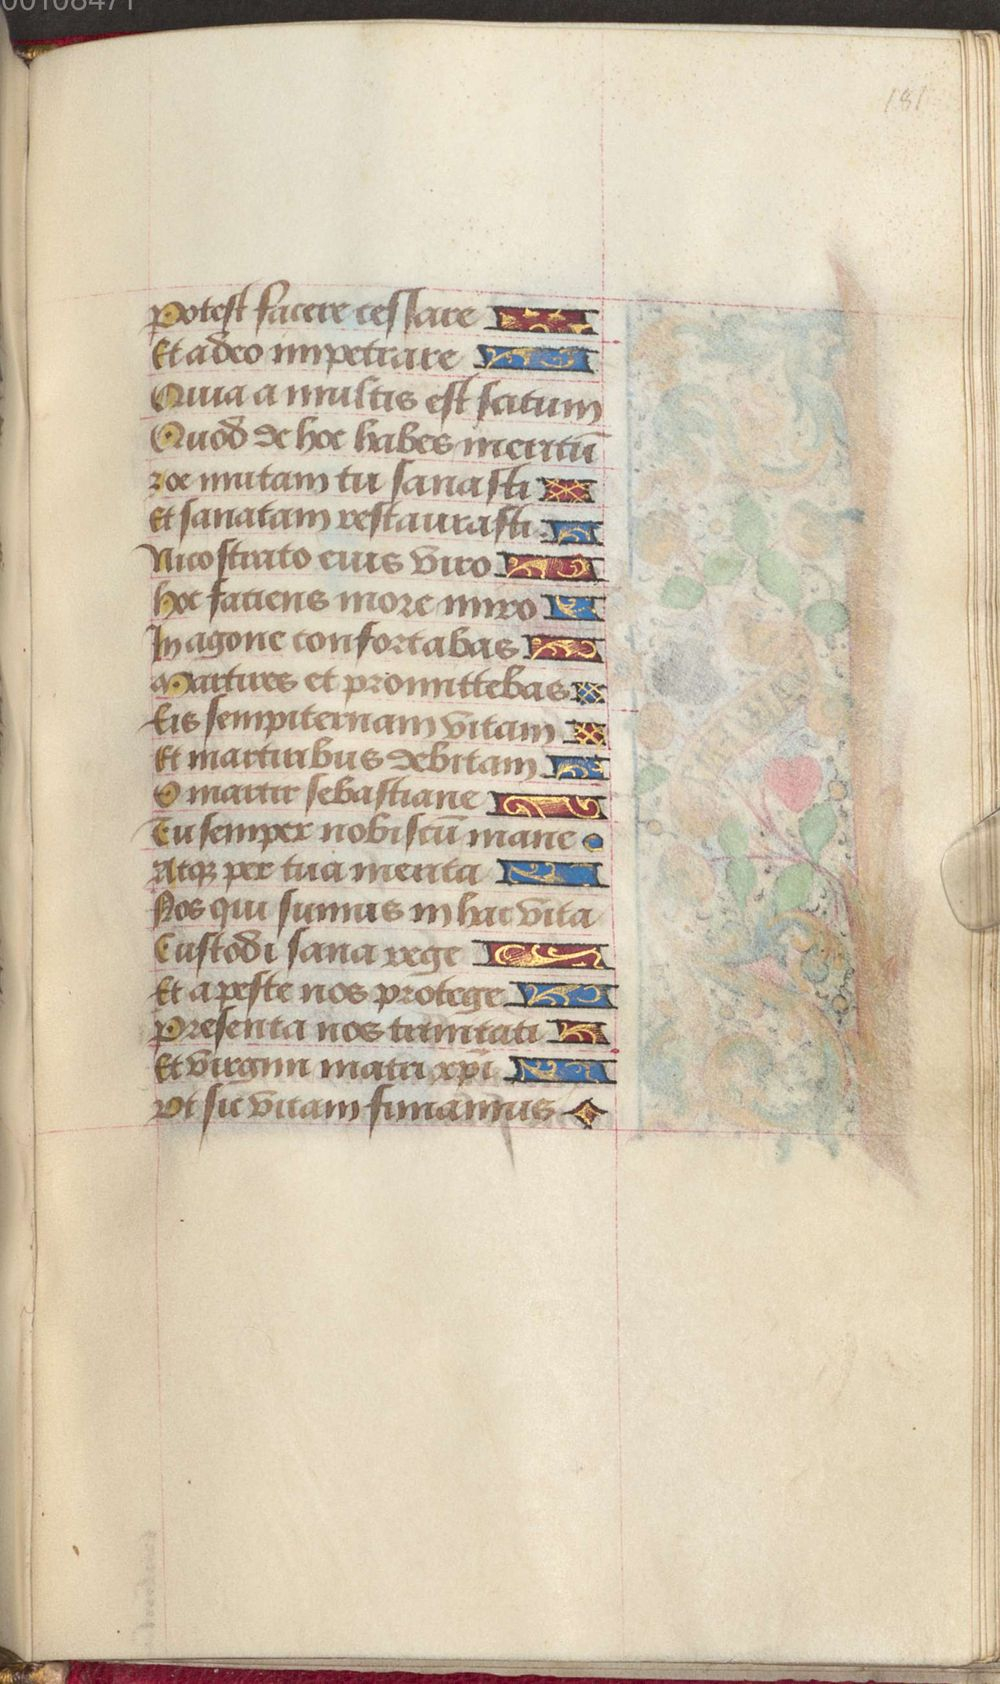 00108471
181
Potest facere cessare
Et a deo impetrare
Quia a multis est scitum
Quod de hoc habes meritū
zoe mutam tu sanasti
Et sanatam restaurasti
Nicostrato eius viro
hoc faciens more miro
In agone confortabas
Martires et promittebas
Eis sempiternam vitam
Et martiribus debitam
O martir sebastiane
Tu semper nobiscū mane
Atqȝ per tua merita
Nos qui sumus in hac vita
Custodi sana rege
Et a peste nos protege
Presenta nos trinitati
Et virgini matri xp̄i
Vt sic vitam finiamus